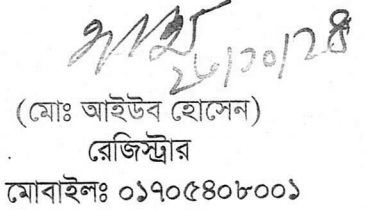 ২৮/১০/২৪
(মোঃ আইউব হোসেন)
রেজিস্ট্রার
মোবাইলঃ ০১৭০৫৪০৮০০১